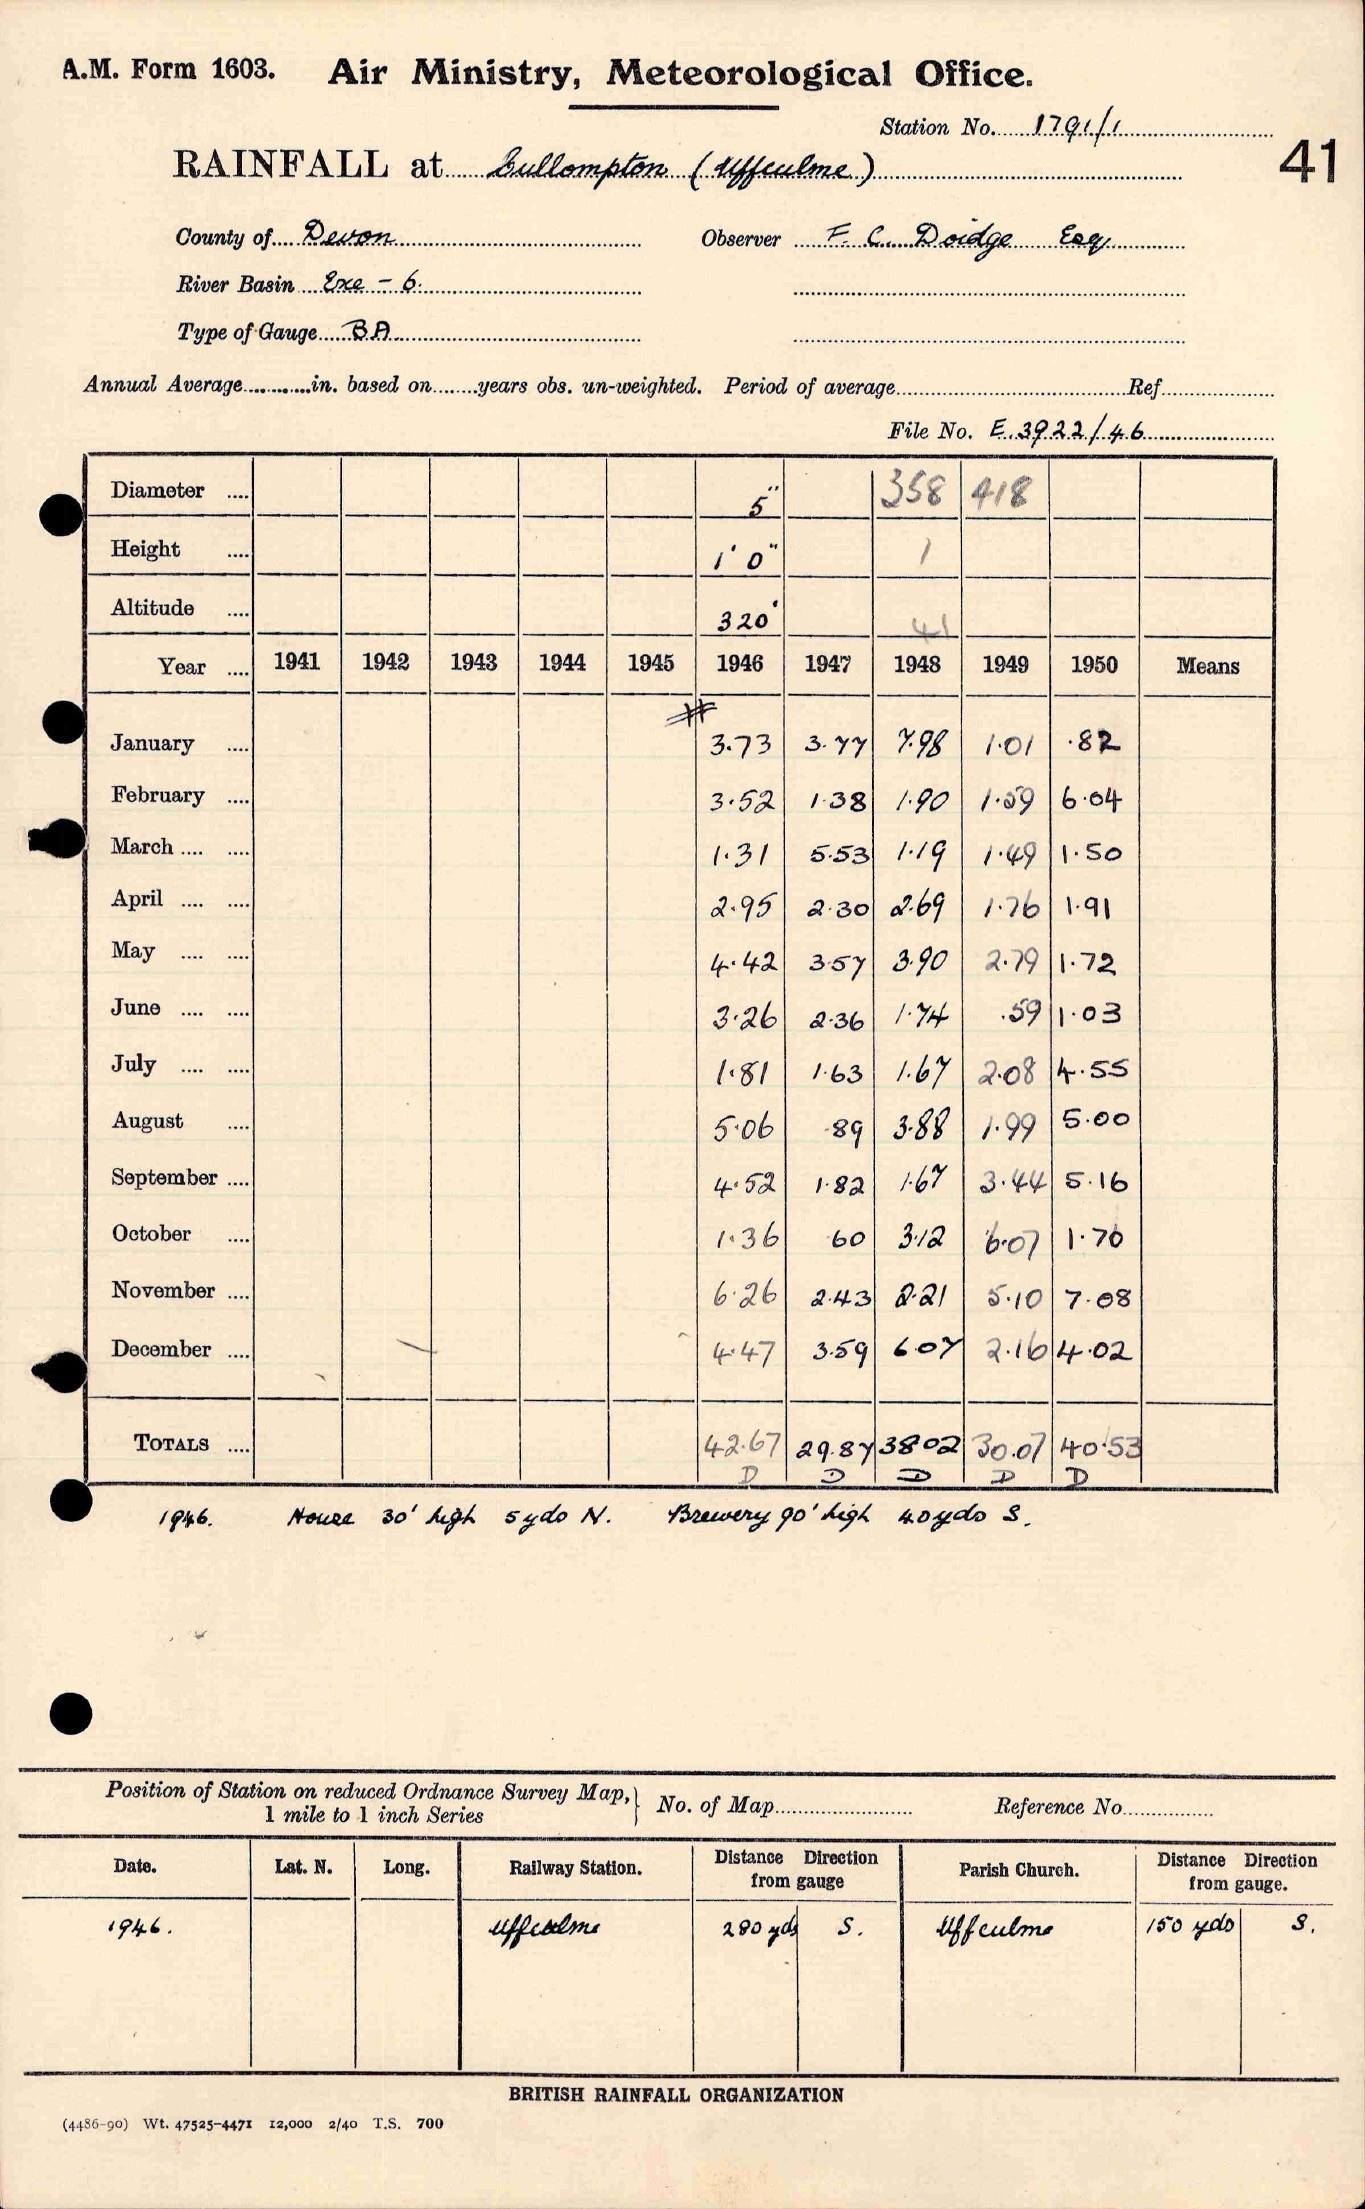 A.M. Form 1603. Air Ministry, Meteorological Office.
Station No. 1791/1
41
RAINFALL at Cullompton (Uffculme)
County of Devon Observer F. C. Doidge Esq
River Basin Exe - 6.
Type of Gauge BA
Annual Average............in. based on........years obs. un-weighted. Period of average Ref
File No. E.3922/46
Diameter .... 5" 358 418
Height .... 1' 0" 1
Altitude .... 320' 41
Year .... 1941 1942 1943 1944 1945 1946 1947 1948 1949 1950 Means
#
January .... 3.73 3.77 7.98 1.01 .82
February .... 3.52 1.38 1.90 1.59 6.04
March .... .... 1.31 5.53 1.19 1.49 1.50
April .... .... 2.95 2.30 2.69 1.76 1.91
May .... .... 4.42 3.57 3.90 2.79 1.72
June .... .... 3.26 2.36 1.74 .59 1.03
July .... .... 1.81 1.63 1.67 2.08 4.55
August .... 5.06 .89 3.88 1.99 5.00
September .... 4.52 1.82 1.67 3.44 5.16
October .... 1.36 .60 3.12 6.07 1.70
November .... 6.26 2.43 2.21 5.10 7.08
December .... 4.47 3.59 6.07 2.16 4.02
TOTALS .... 42.67 29.87 38.02 30.07 40.53
D D D D D
1946. House 30' high 5yds N. Brewery 90' high 40yds S.
Position of Station on reduced Ordnance Survey Map, } No. of Map Reference No.
1 mile to 1 inch Series
Date. Lat. N. Long. Railway Station. Distance Direction from gauge Parish Church. Distance Direction from gauge.
1946. Uffculme 280 yds S. Uffculme 150 yds S.
BRITISH RAINFALL ORGANIZATION
(4486-90) Wt. 47525-4471 12,000 2/40 T.S. 700